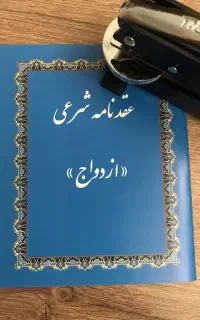 عقدنامه شرعی
«ازدواج»